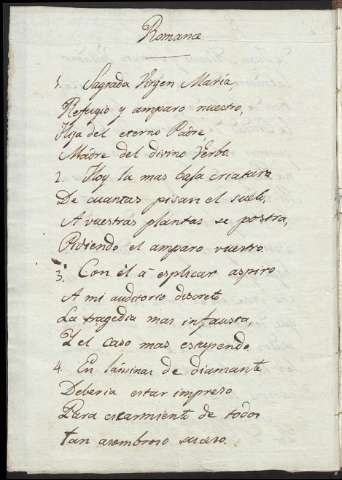 Romance
1. Sagrada Virgen Maria,
Refugio y amparo nuestro,
Hija del eterno Padre,
Madre del divino Verbo
2. Hoy la mas baja criatura
De cuantas pisan el suelo,
A vuestras plantas se postra,
Pidiendo el amparo vuestro.
3. Con él á esplicar aspiro
A mi auditorio discreto
La tragedia mas infausta,
Y el caso mas estupendo
4. En láminas de diamante
Deberia estar impreso
Para escarmiento de todos
Tan asombroso suceso.